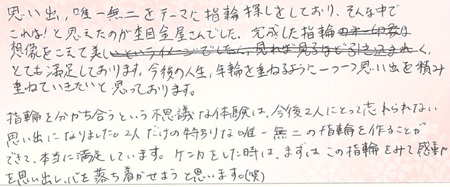 思い出、唯一無二をテーマに指輪探しをしており、そんな中で
これは!と思えたのが杢目金屋さんでした。完成した指輪
想像をこえて美しく、
とても満足しております。今後の人生、年輪を重ねるように一つ一つ思い出を積み
重ねていきたいと思っております。
指輪を分かち合うという不思議な体験は、今後2人にとって忘れられない
思い出になりました。2人だけの特別な唯一無二の指輪を作ることが
できて、本当に満足しています。ケンカをした時は、まずはこの指輪をみて感事
を思い出し、心を落ち着かせようと思います。(笑)